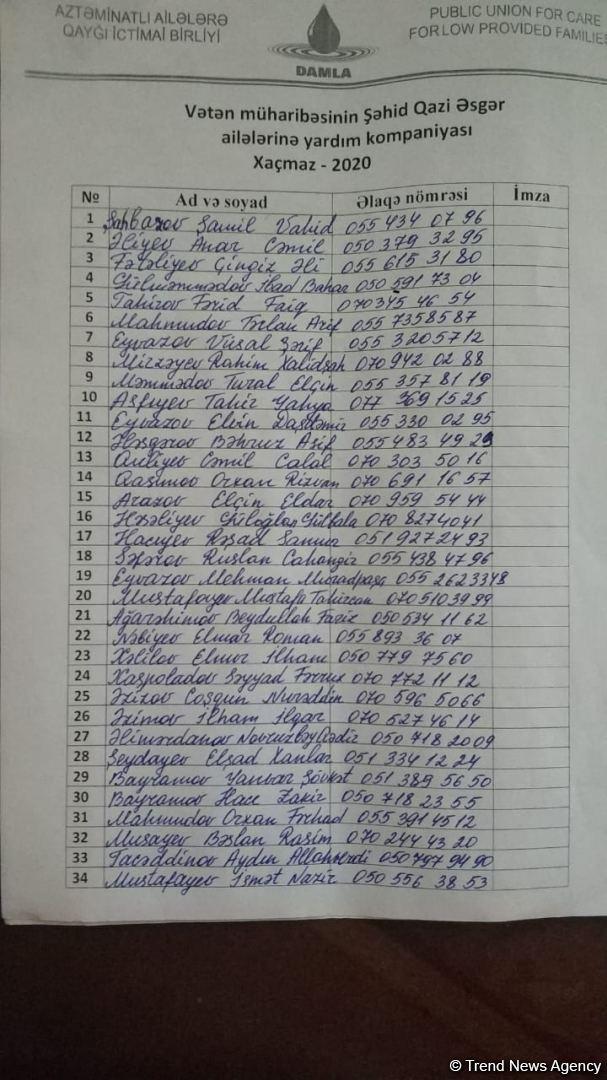 AZTƏMİNATLI AİLƏLƏRƏ
QAYĞI İCTİMAİ BİRLİYİ
DAMLA
PUBLIC UNION FOR CARE
FOR LOW PROVIDED FAMILIES
Vətən müharibəsinin Şəhid Qazi Əsgər
ailələrinə yardım kompaniyası
Xaçmaz - 2020
№ Ad və soyad Əlaqə nömrəsi İmza
1 Şahbazov Şamil Vahid 055 434 07 96
2 Əliyev Anar Cəmil 050 379 32 95
3 Fətəliyev Çingiz Əli 055 615 31 80
4 Gülməmmədov İbad Bahar 050 591 73 04
5 Tahirov Fərid Faiq 070 345 46 54
6 Mahmudov Arif 055 735 85 87
7 Eyvazov Vüsal Şərif 055 320 57 12
8 Mirzəyev Rahim Xalidşah 070 942 02 88
9 Məmmədov Tural Elçin 055 357 81 19
10 Tahir Yahya 077 369 15 25
11 Eyvazov Elvin Daşdəmir 055 330 02 95
12 Əsgərov Bəhruz Asif 055 483 49
13 Quliyev Cəmil Calal 070 303 50 16
14 Qasımov Orxan Rizvan 070 691 16 57
15 Arazov Elçin Eldar 070 959 54 44
16 Həsəliyev Güloğlan 070 827 40 41
17 Hacıyev Rəşad 051 927 24 93
18 Səfərov Ruslan Cahangir 055 438 47 96
19 Eyvazov Mehman Muradpaşa 055 262 33 48
20 Mustafayev Mustafa Tahircan 070 510 39 99
21 Ağarəhimov Beydullah 050 534 11 62
22 Nəbiyev Elmar Roman 055 893 36 07
23 Xəlilov Elnur İlham 050 779 75 60
24 Xaspoladov Səyyad 070 772 11 12
25 Əzizov Coşqun Nurəddin 070 596 50 66
26 Əzimov İlham İlqar 070 527 46 14
27 Novruzbəy Qədir 050 718 20 09
28 Seydayev Elşad Xanlar 051 334 12 24
29 Bayramov Yanvar Şövkət 051 389 56 50
30 Bayramov Zakir 050 718 23 55
31 Mahmudov Orxan Fərhad 055 391 45 12
32 Musayev Bəslan Rasim 070 244 43 20
33 Tacəddinov Aydın Allahverdi 050 797 94 90
34 Mustafayev İsmət Nazir 050 556 38 53
© Trend News Agency